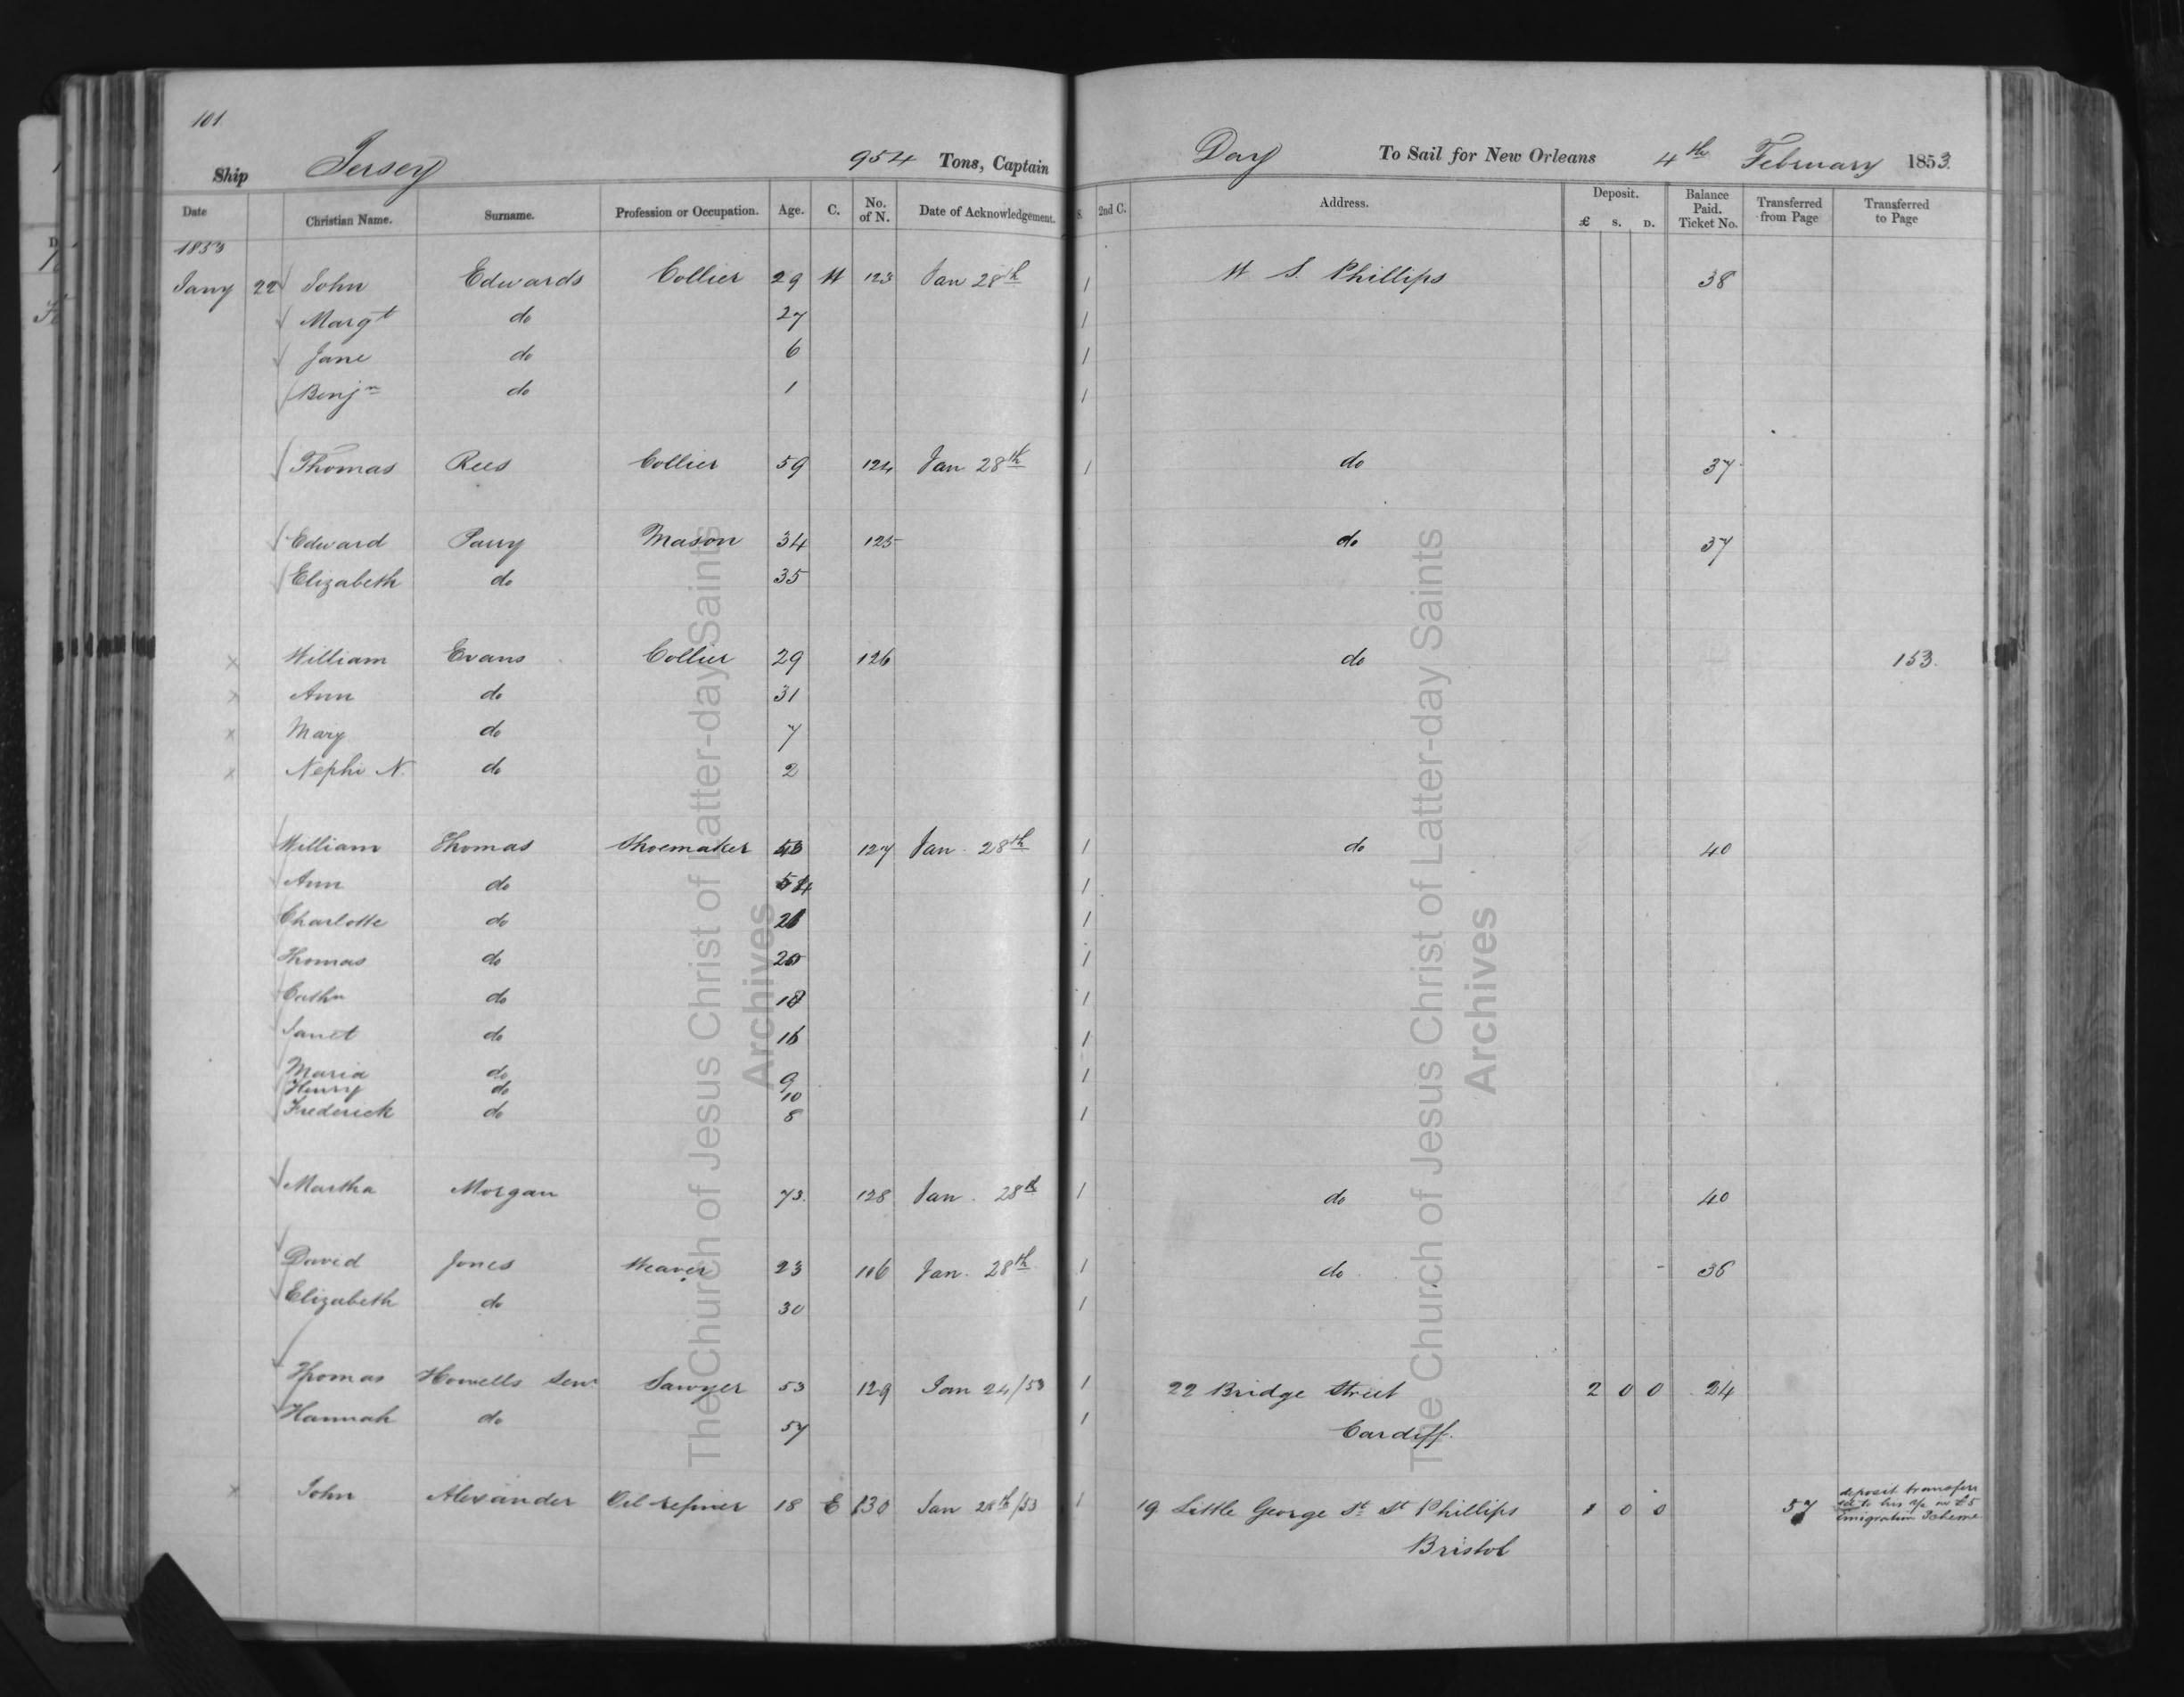 101.
Ship Jersey 954 Tons, Captain Day To Sail for New Orleans 4th February 1853
Date Christian Name. Surname. Profession or Occupation. Age. C. No. of N. Date of Acknowledgement. S. 2nd C. Address. Deposit. £ S. D. Balance Paid. Ticket No. Transferred from Page Transferred to Page
1853
Jany 22 John Edwards Collier 29 W 123 Jan 28th 1 W S. Phillips 38
Margt do 27 1
Jane do 6 1
Benjn do 1 1
Thomas Rees Collier 59 124 Jan 28th 1 do 37
Edward Parry Mason 34 125 do 37
Elizabeth do 35
x William Evans Collier 29 126 do 153.
x Ann do 31
x Mary do 7
x Nephi N. do 2
William Thomas Shoemaker 127 Jan. 28th 1 do 40
Ann do 1
Charlotte do 1
Thomas do 1
Cathn do 1
Janet do 16 1
Maria do 9 1
Henry do 10
Frederick do 8 1
Martha Morgan 73. 128 Jan. 28th 1 do 40
David Jones Weaver 23 116 Jan. 28th 1 do 36
Elizabeth do 30 1
Thomas Howells Senr Sawyer 53 129 Jan 24/53 1 22 Bridge Street 2 0 0 24
Hannah do 57 1 Cardiff.
x John Alexander Oil refiner 18 E 130 Jan 28th/53 1 19 Little George St St Phillips 1 0 0 57 deposit transferr
ed to his a/c in £5
emigration Scheme
Bristol
The Church of Jesus Christ of Latter-day Saints
Archives
The Church of Jesus Christ of Latter-day Saints
Archives